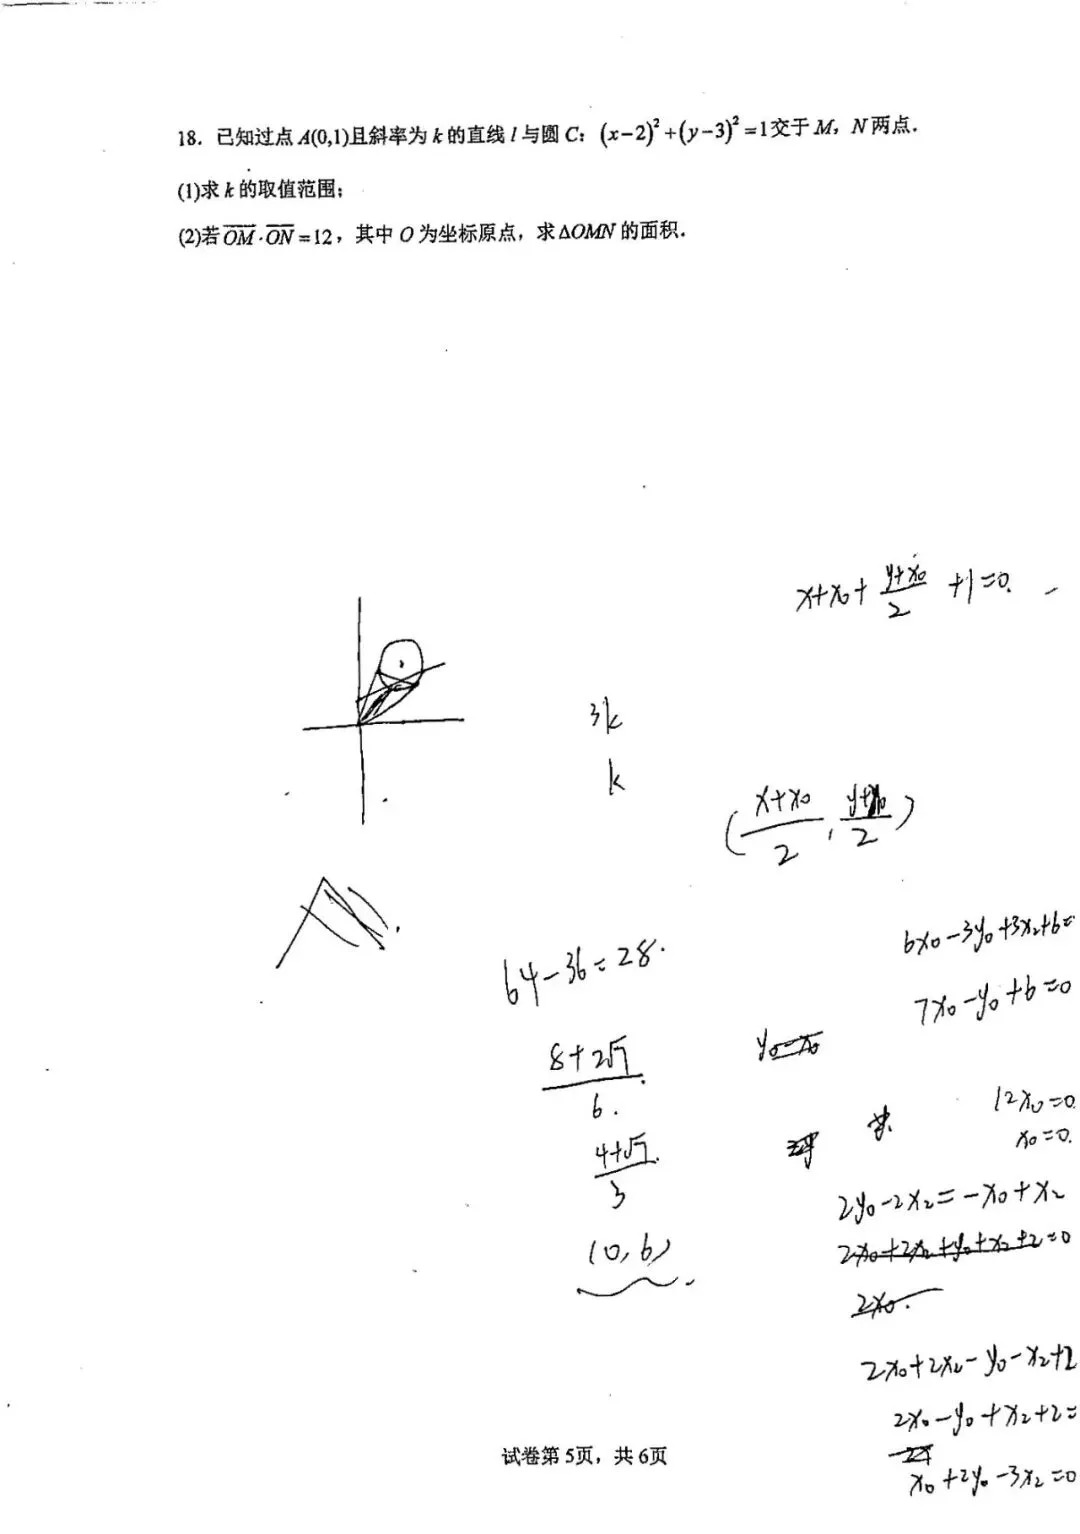 18. 已知过点 A(0,1)且斜率为 k 的直线 l 与圆 C: (x-2)²+(y-3)²=1交于 M, N 两点.
(1)求 k 的取值范围;
(2)若 OM·ON=12, 其中 O 为坐标原点, 求△OMN 的面积.
x+x₀+ (y+x₀)/2 +1=0.
3k
k
( (x+x₀)/2 ,
6x₀-3y₀+3x₂+6=
64-36=28.
7x₀-y₀+6=0
(8+2√7)/6.
12x₀=0
(4+√7)/3
x₀=0.
2y₀-2x₂=-x₀+x₂
(0,6)
2x₀+2x₂+y₀+x₂+2=0
2x₀.
2x₀+2x₂-y₀-x₂+2
2x₀-y₀+x₂+2=
x₀+2y₀-3x₂=0
试卷第 5页, 共 6页